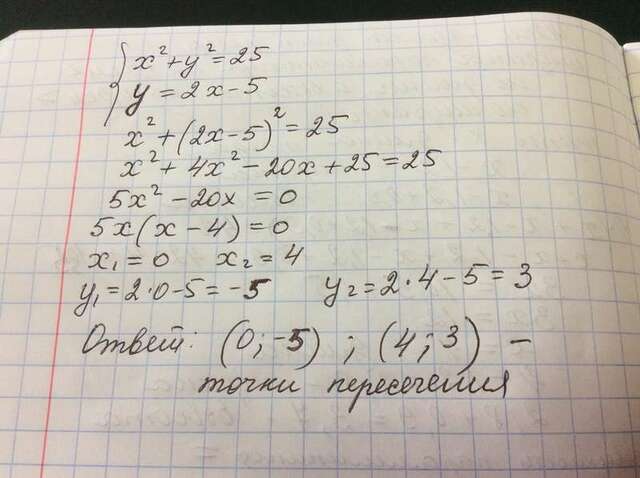 { x² + y² = 25
y = 2x - 5
x² + (2x - 5)² = 25
x² + 4x² - 20x + 25 = 25
5x² - 20x = 0
5x(x - 4) = 0
x₁ = 0 x₂ = 4
y₁ = 2·0 - 5 = -5 y₂ = 2·4 - 5 = 3
Ответ: (0; -5) ; (4; 3) -
точки пересечения